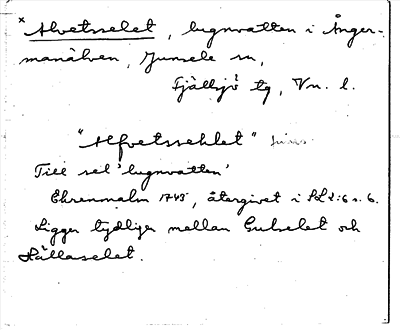 *Alvetsselet, lugnvatten i Ånger-
manälven, Junsele sn,
Fjällsjö tg, Vn. l.
"Alfvetssehlet"
Till sel 'lugnvatten'
Ehrenmalm 1743, återgivet i SL 2:6 s. 6.
Ligger tydligen mellan Gulselet och
Hällaselet.